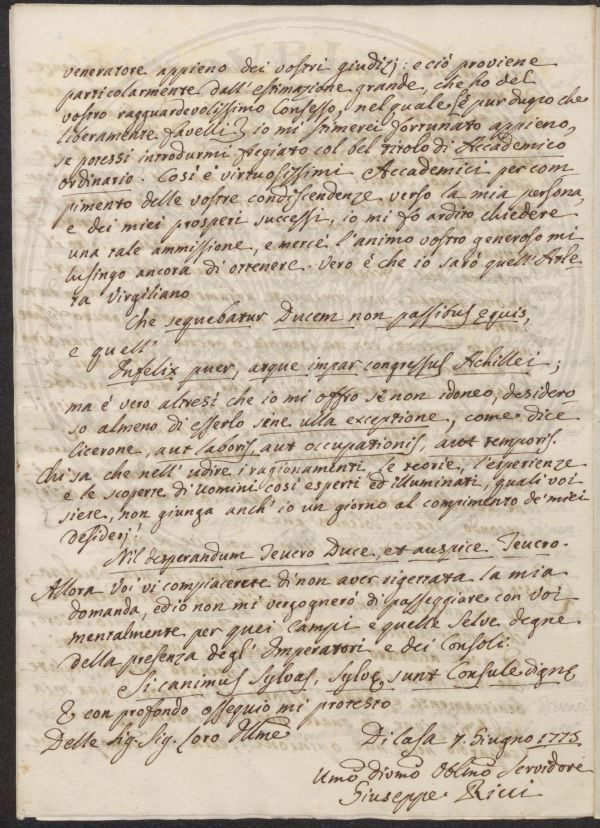 veneratore appieno dei vostri giudizj: e ciò proviene
particolarmente dall'estimazione grande, che ho del
vostro ragguardevolissimo Consesso, nel quale [è pur d'uopo che
liberamente favelli] io mi stimerei fortunato appieno,
se potessi introdurmi fregiato col bel titolo di Accademico
ordinario. Così è virtuosissimi Accademici per com
pimento delle vostre condiscendenze verso la mia persona,
e dei miei prosperi successi, io mi fò ardito chiedere
una tale ammissione, e mercè l'animo vostro generoso mi
lusingo ancora di ottenere. Vero è che io sarò quell'Atle
ta Virgiliano
Che sequebatur Ducem non passibus equis,
e quell'
Infelix puer, atque impar congressus Achillei;
ma è vero altresì che io mi offro se non idoneo, desidero
so almeno di esserlo sine ulla exceptione, come dice
Cicerone, aut laboris, aut occupationis, aut temporis.
Chi sa che nell'udire i ragionamenti, le teorie, l'esperienze
e le scoperte di Uomini così esperti ed illuminati, quali voi
siete, non giunga anch'io un giorno al compimento de' miei
desiderj!
Nil desperandum Teucro Duce, et auspice Teucro.
Allora Voi vi compiacerete di non aver rigettata la mia
domanda, ed io non mi vergognerò di passeggiare con Voi
mentalmente per quei Campi e quelle Selve degne
della presenza degl'Imperatori e dei Consoli.
Si canimus Sylvas, Sylvę sunt Consule dignę
E con profondo ossequio mi protesto
Delle Sig. Sig. Loro Illme
Di Casa 7. Giugno 1773.
Umo divmo Oblmo Servidore
Giuseppe Ricci